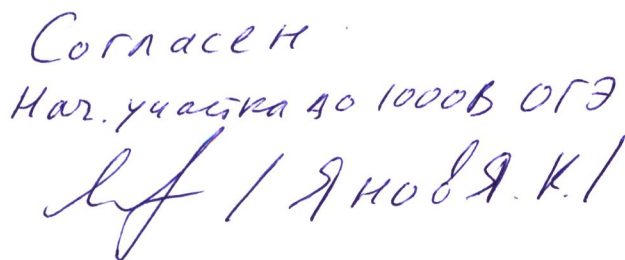 Согласен
Нач. участка до 1000В ОГЭ
/ Янов Я.К./